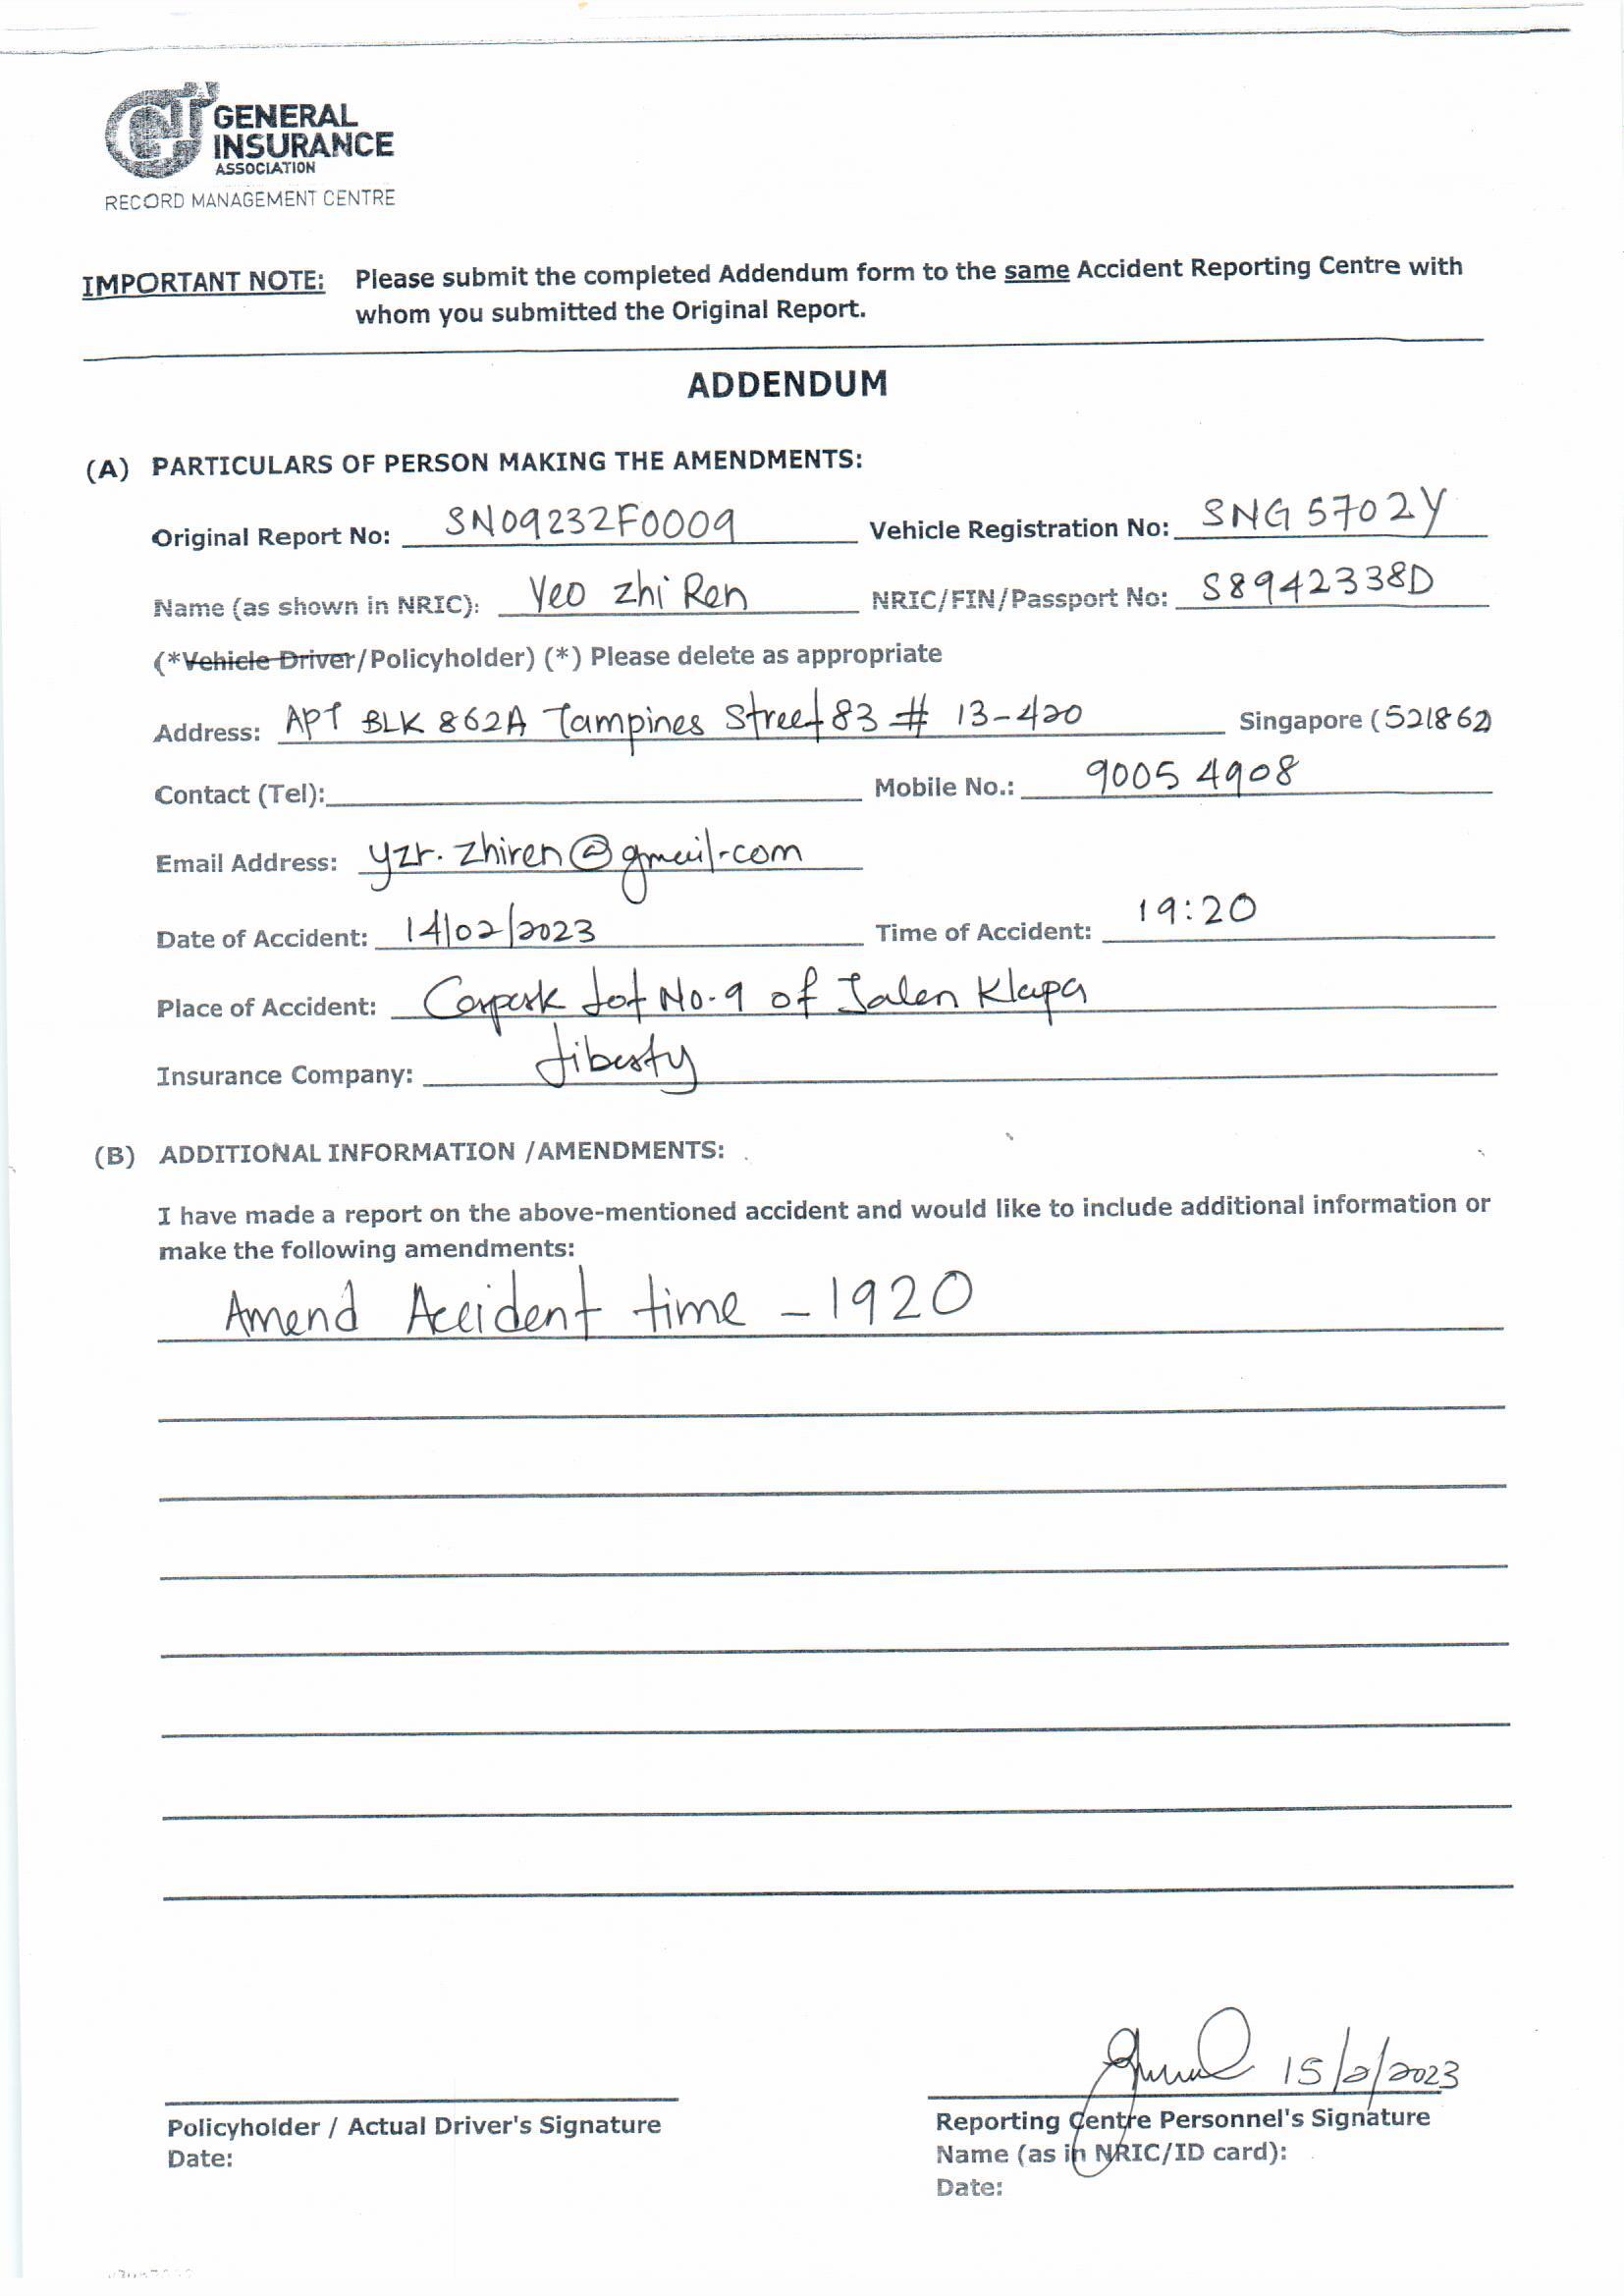 GENERAL
INSURANCE
ASSOCIATION
RECORD MANAGEMENT CENTRE
IMPORTANT NOTE: Please submit the completed Addendum form to the same Accident Reporting Centre with
whom you submitted the Original Report.
ADDENDUM
(A) PARTICULARS OF PERSON MAKING THE AMENDMENTS:
Original Report No: SN09232F0009 Vehicle Registration No: SNG 5702Y
Name (as shown in NRIC): Yeo Zhi Ren NRIC/FIN/Passport No: S8942338D
(*Vehicle Driver/Policyholder) (*) Please delete as appropriate
Address: APT BLK 862A Tampines Street 83 # 13-420 Singapore (521862)
Contact (Tel): Mobile No.: 9005 4908
Email Address: yzr.zhiren@gmail.com
Date of Accident: 14/02/2023 Time of Accident: 19:20
Place of Accident: Carpark Lot No.9 of Jalan Klapa
Insurance Company: Liberty
(B) ADDITIONAL INFORMATION /AMENDMENTS:
I have made a report on the above-mentioned accident and would like to include additional information or
make the following amendments:
Amend Accident time - 1920
15/2/2023
Policyholder / Actual Driver's Signature Reporting Centre Personnel's Signature
Date: Name (as in NRIC/ID card):
Date: